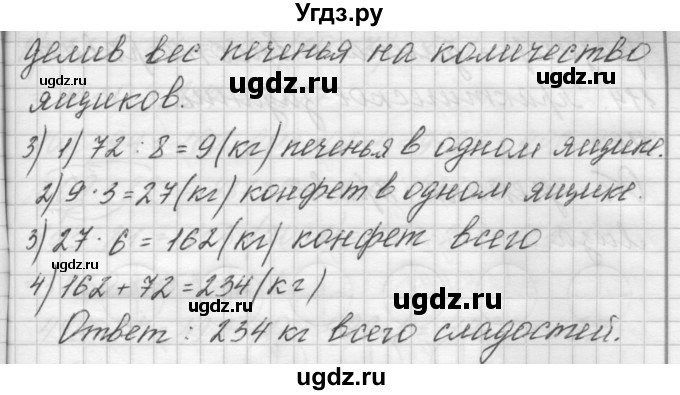 Угдз.ру
делив вес печенья на количество
ugdz.ru ugdz.ru ugdz.ru
ящиков.
3) 1) 72 : 8 = 9 (кг) печенья в одном ящике.
ugdz.ru ugdz.ru
2) 9 · 3 = 27 (кг) конфет в одном ящике.
3) 27 · 6 = 162 (кг) конфет всего
ugdz.ru ugdz.ru ugdz.ru
4) 162 + 72 = 234 (кг)
Ответ : 234 кг всего сладостей.
ugdz.ru